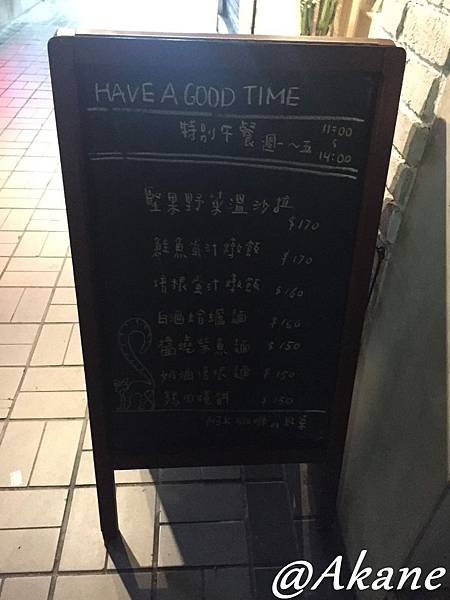 HAVE A GOOD TIME
特別午餐 週一~五 11:00
~
14:00
堅果野菜溫沙拉
$170
鮭魚蛋汁燉飯 $170
培根蛋汁燉飯 $160
白酒蛤蠣麵 $160
醬燒柴魚麵 $150
奶油培根麵 $150
$150
@Akane